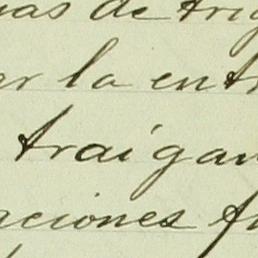 as de trig
r la entr
traigan
aciones f